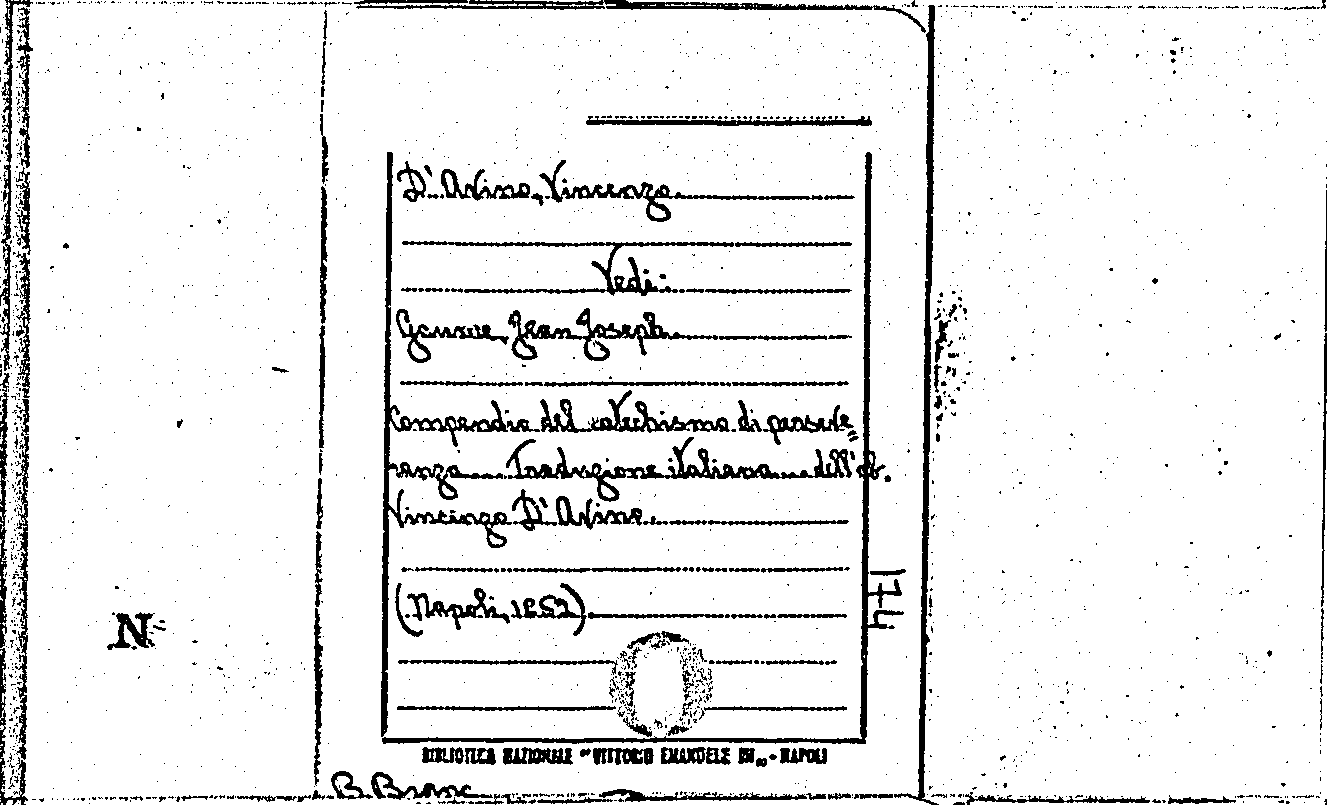 D'Avino, Vincenzo.
Vedi:
Gaume, Jean Joseph.
Compendio del catechismo di perseve=
ranza.... Traduzione italiana.... dell'ab.
Vincenzo D'Avino.
(Napoli, 1852).
174
N
BIBLIOTECA NAZIONALE "VITTORIO EMANUELE III„ - NAPOLI
B. Branc